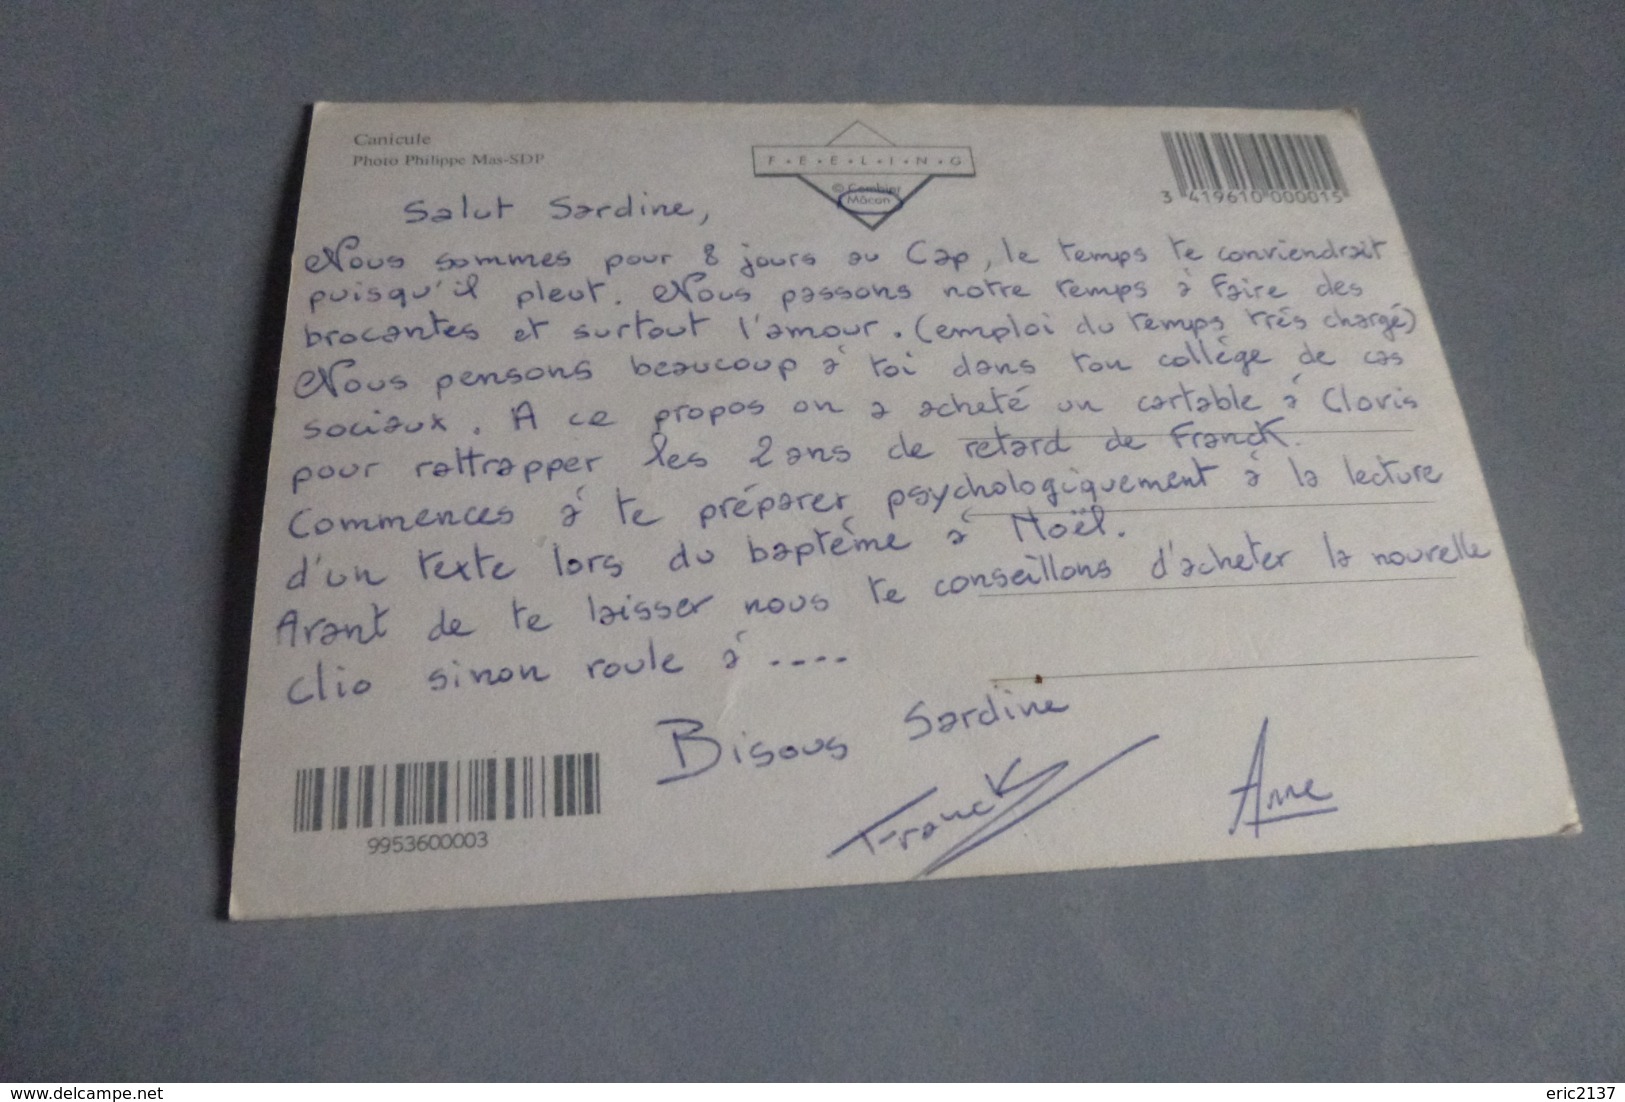 Canicule
Photo Philippe Mas-SDP
F•E•E•L•I•N•G
© Combier
Mâcon
3 419610 000015
Salut Sardine,
Nous sommes pour 8 jours au Cap, le temps te conviendrait
puisqu'il pleut. Nous passons notre temps à faire des
brocantes et surtout l'amour. (emploi du temps très chargé)
Nous pensons beaucoup à toi dans ton collège de cas
sociaux. A ce propos on a acheté un cartable à Clovis
pour rattrapper les 2 ans de retard de Franck.
Commences à te préparer psychologiquement à la lecture
d'un texte lors du baptême à Noël.
Avant de te laisser nous te conseillons d'acheter la nouvelle
Clio sinon roule à ....
Bisous Sardine
Franck
Anne
9953600003
delcampe.net
eric2137